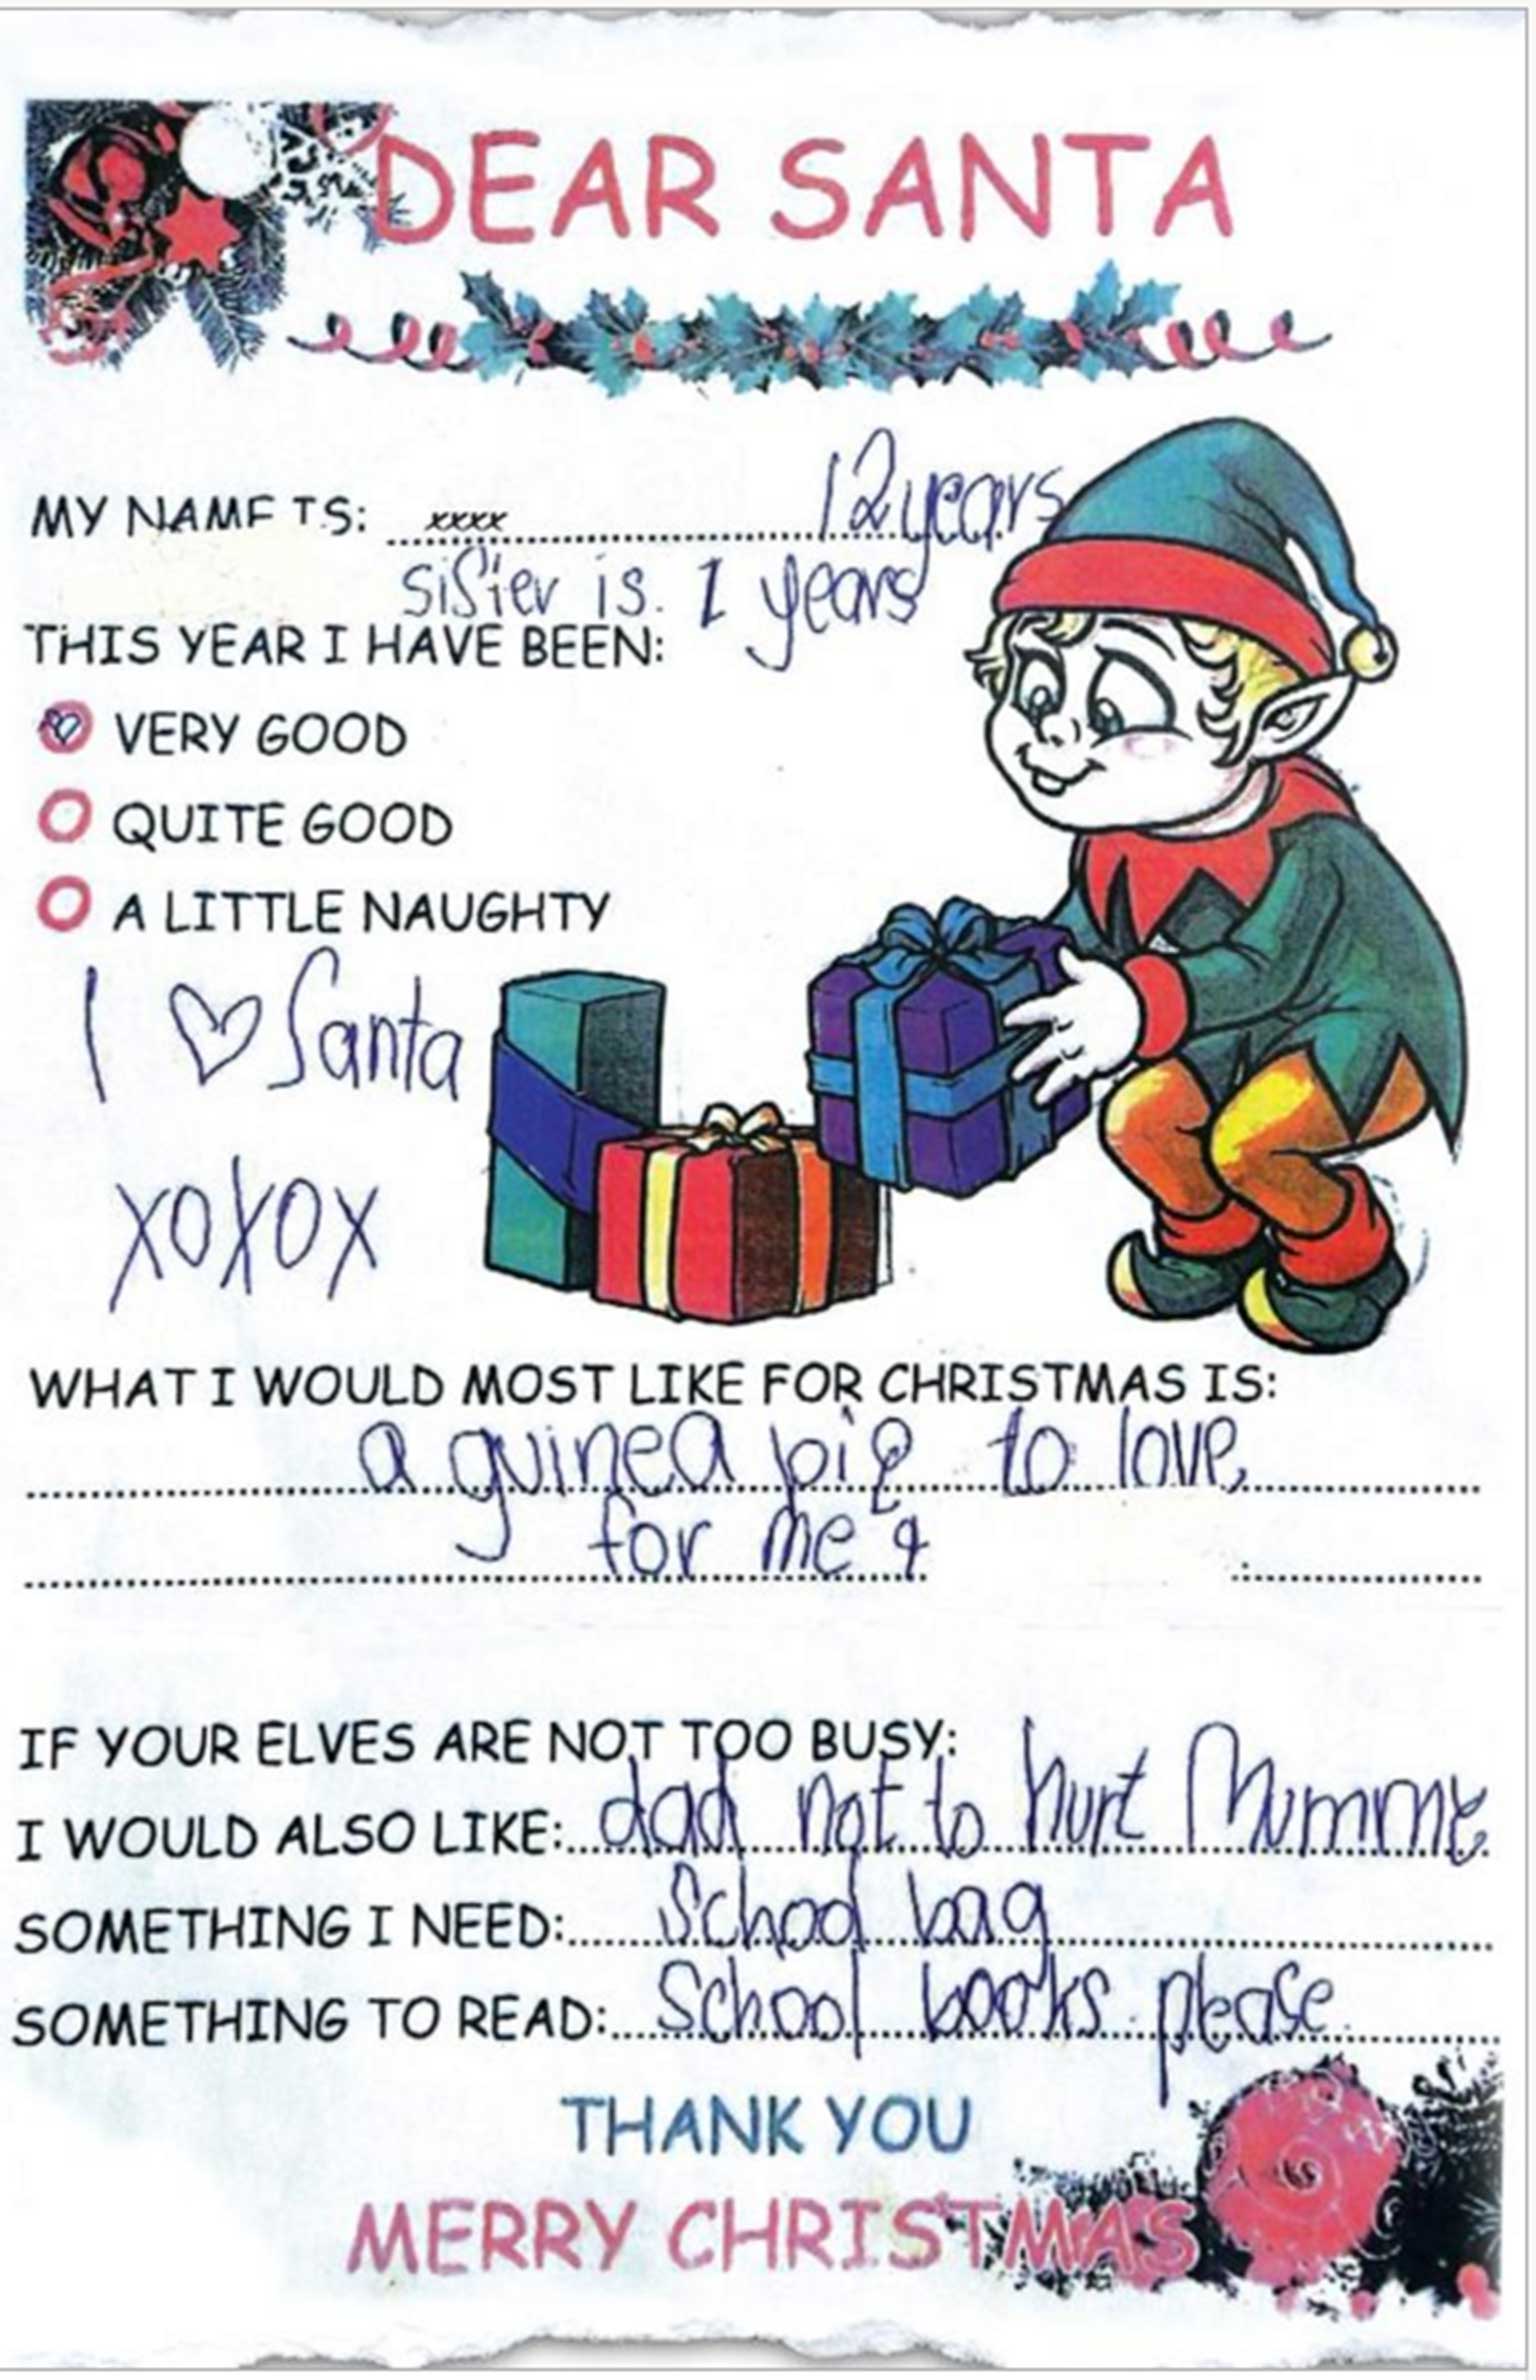 DEAR SANTA
MY NAME IS: xxxx 12 years
sister is. 1 years
THIS YEAR I HAVE BEEN:
VERY GOOD
QUITE GOOD
A LITTLE NAUGHTY
I ♡ Santa
xoxox
WHAT I WOULD MOST LIKE FOR CHRISTMAS IS:
a guinea pig to love,
for me &
IF YOUR ELVES ARE NOT TOO BUSY:
I WOULD ALSO LIKE: dad not to hurt Mummy.
SOMETHING I NEED: School bag
SOMETHING TO READ: School books please
THANK YOU
MERRY CHRISTMAS